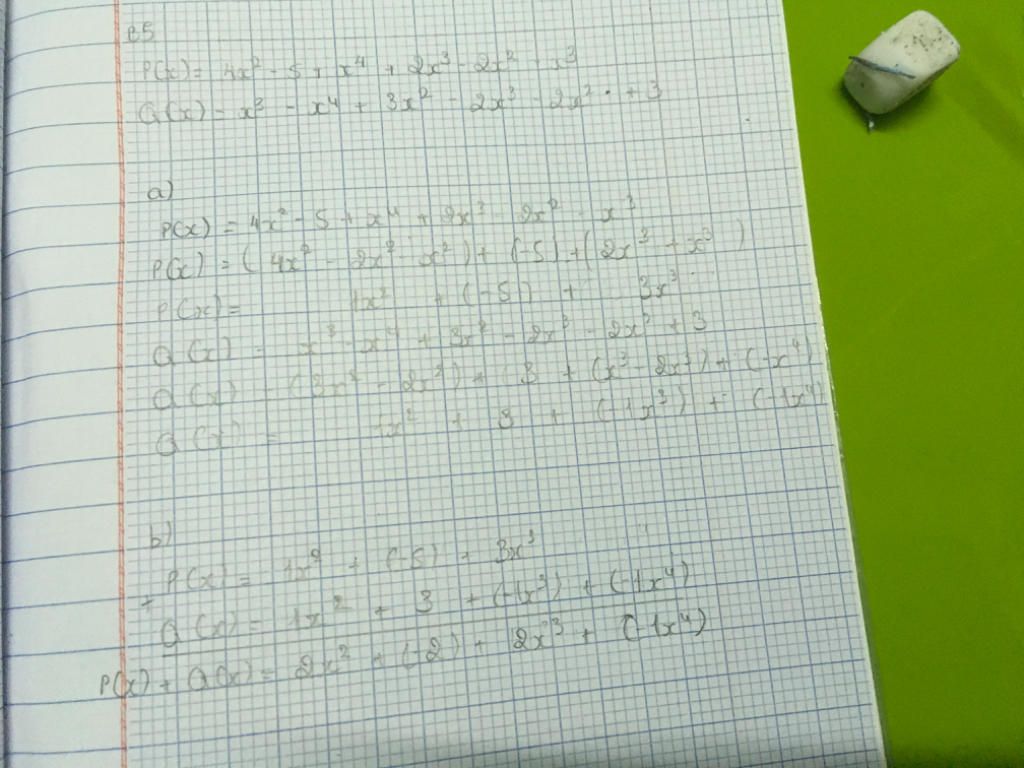 e5
P(x) = 4x² - 5 + x⁴ + 2x³ - 2x² - x³
Q(x) = x³ - x⁴ + 3x² - 2x³ - 2x² + 3
a)
P(x) = 4x² - 5 + x⁴ + 2x³ - 2x² - x³
P(x) = ( 4x² - 2x² - x² ) + (-5) + ( 2x³ + x³ )
P(x) = 1x² + (-5) + 3x³
Q(x) = x³ - x⁴ + 3x² - 2x³ - 2x² + 3
Q(x) = (3x² - 2x²) + (3 + (x³ - 2x³) + (-x⁴)
Q(x) = 1x² + 3 + (-1x³) + (-1x⁴)
b)
P(x) = 1x² + (-5) + 3x³
+ Q(x) = 1x² + 3 + (-1x³) + (-1x⁴)
P(x) + Q(x) = 2x² + (-2) + 2x³ + (-1x⁴)